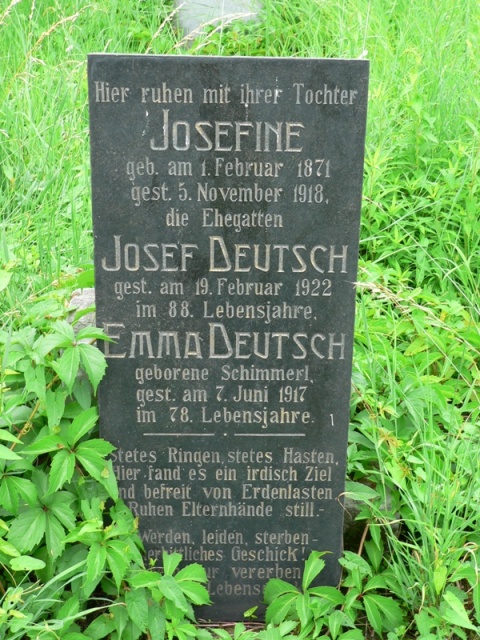 Hier ruhen mit ihrer Tochter
JOSEFINE
geb. am 1. Februar 1871
gest. 5. November 1918,
die Ehegatten
JOSEF DEUTSCH
gest. am 19. Februar 1922
im 88. Lebensjahre,
EMMA DEUTSCH
geborene Schimmerl,
gest. am 7. Juni 1917
im 78. Lebensjahre.
Stetes Ringen, stetes Hasten,
Hier fand es ein irdisch Ziel
Und befreit von Erdenlasten
Ruhen Elternhände still.-
Werden, leiden, sterben-
Geschick!
vererben